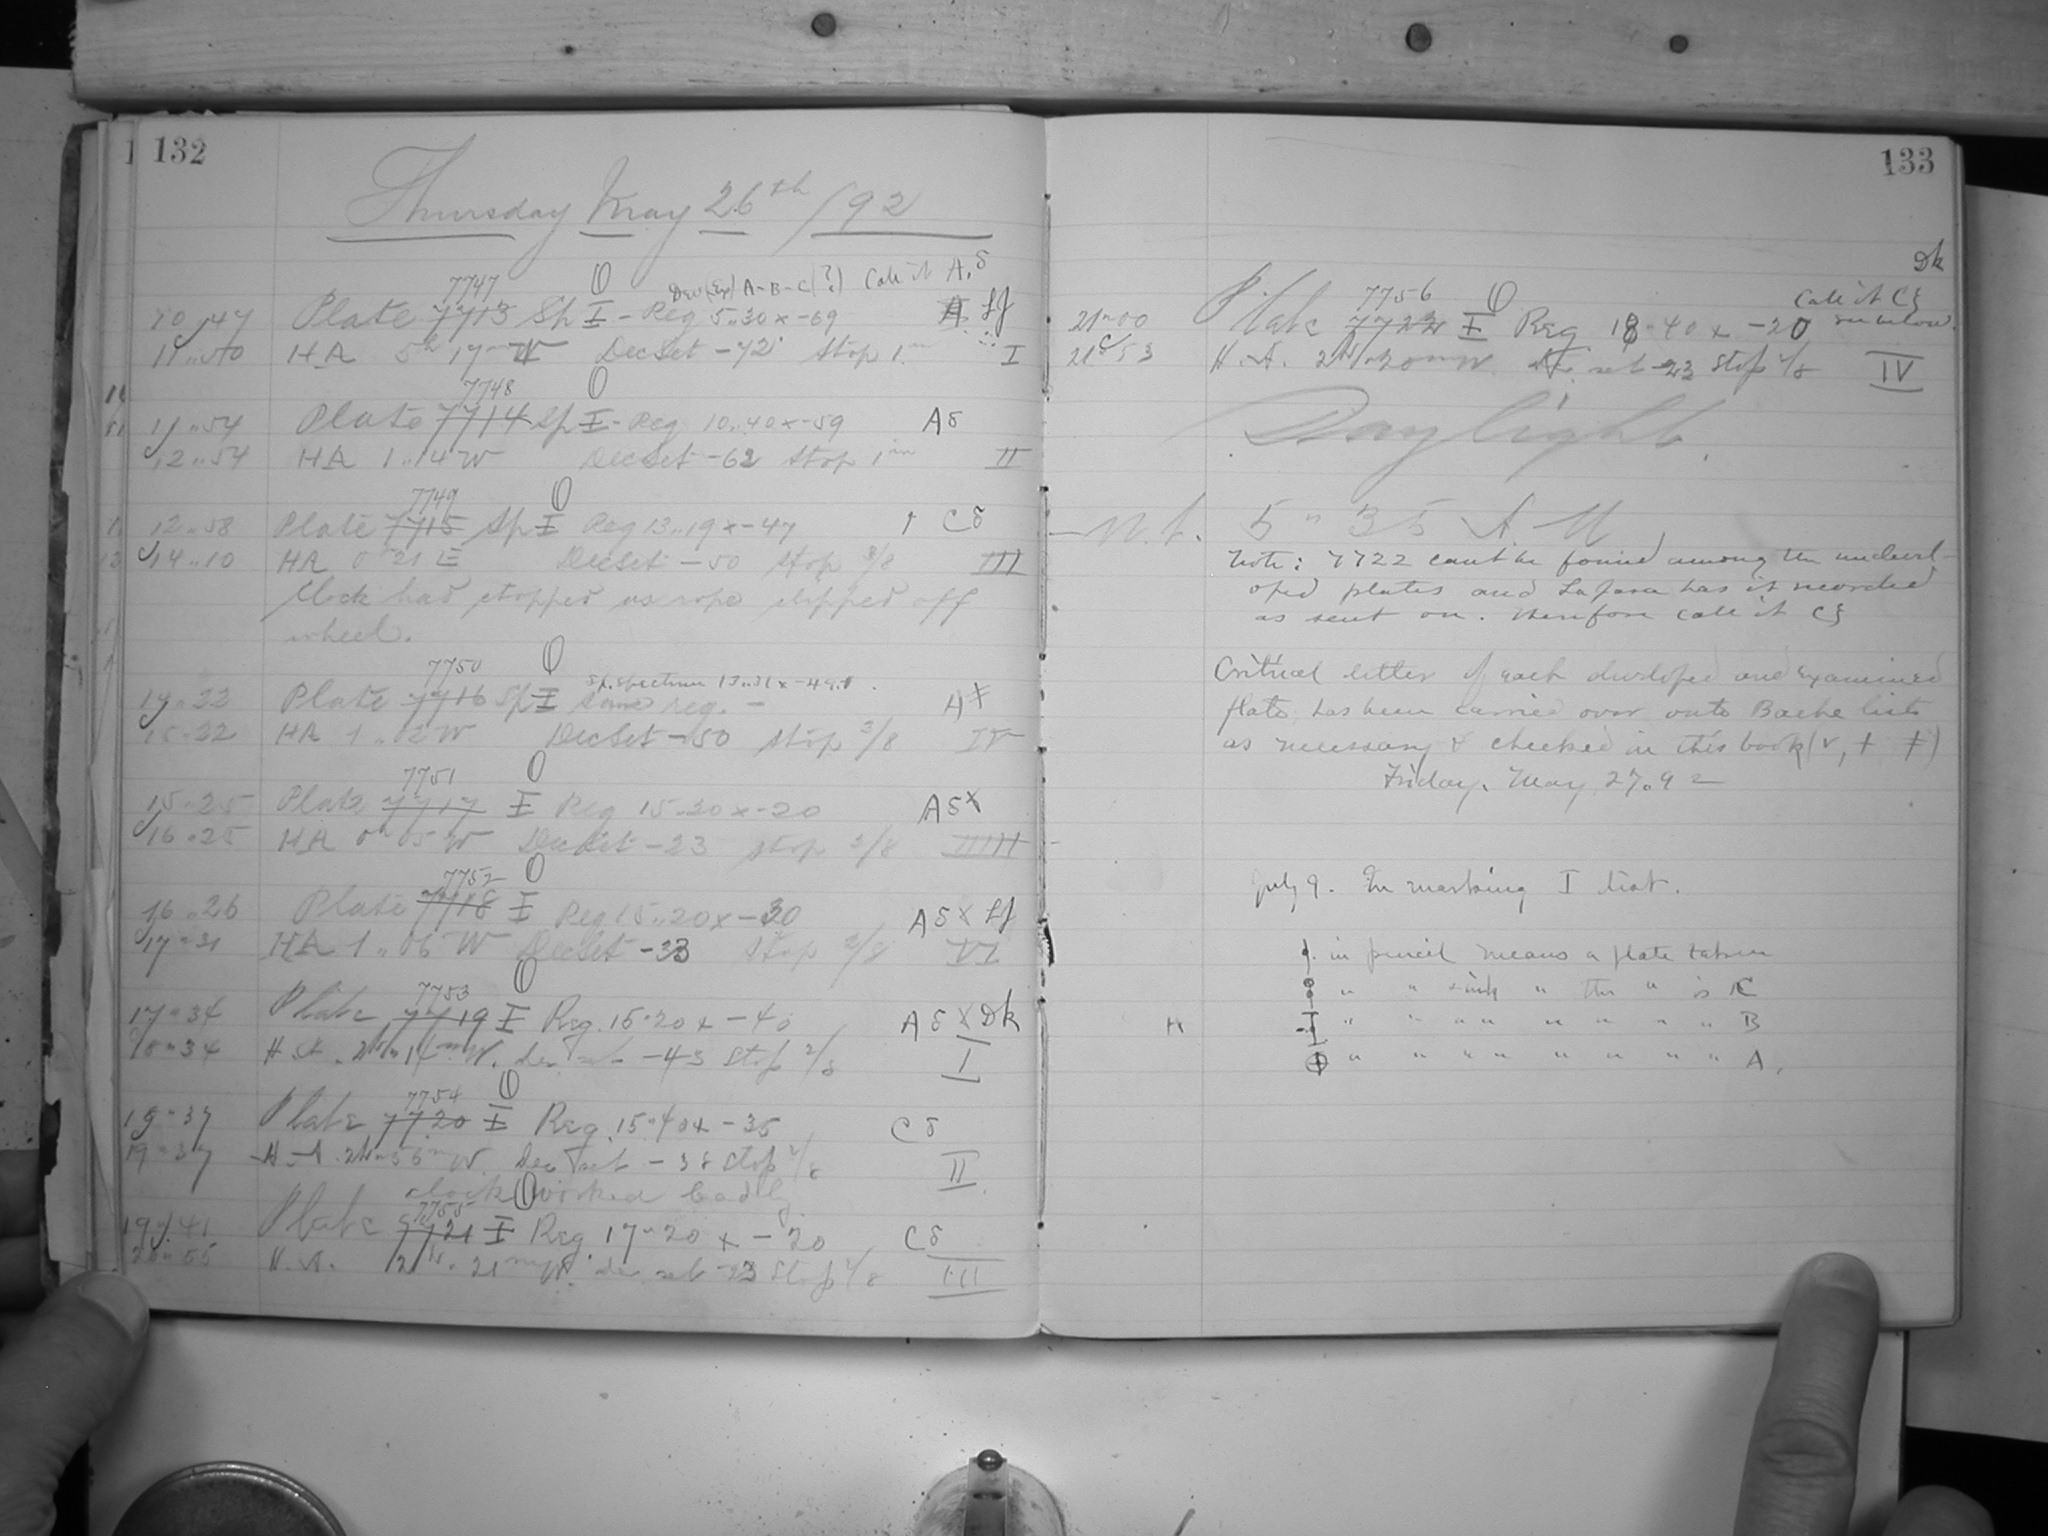 132
Thursday May 26th /92
7747 Dev (Exp) A-B-C (?) Call it A, δ
10 „ 47 Plate 7713 Sp I - Reg 5„30 x -69 Lf
11 „ 50 HA 5h 17m W Dec Set -72° Stop 1in I
7748
11 „ 54 Plate 7714 Sp I - Reg 10„40 x -59 A δ
12 „ 54 HA 1„14 W Dec Set -62 Stop 1in II
7749
12 „ 58 Plate 7715 Sp I Reg 13„19 x -47 C δ
14 „ 10 HA 0 21 E Dec Set -50 Stop 3/8 III
Clock had stopped as rope slipped off
wheel.
7750
14 „ 22 Plate 7716 Sp I Same reg. -
15 „ 22 HA 1„02 W Dec Set -50 Stop 3/8 IV
7751
15 „ 25 Plate 7717 I Reg 15„20 x -20 A δ x
16 „ 25 HA 0h 05 W Dec Set -23 Stop 2/8 IIIII
7752
16 „ 26 Plate 7718 I Reg 15„20 x -30 A δ x Lf
17 „ 31 HA 1„06 W Dec Set -33 Stop 2/8 VI
7753
17 „ 34 Plate 7719 I Reg. 15„20 x -40 A δ x Dk
18 „ 34 H.A. 2h„14m W. dec set -43 Stop 2/8 I
7754
Plate 7720 I Reg. 15„40 x -35 C δ
19 „ 37 H.A. 2h„56m W. Dec set -38 Stop 2/8 II
clock worked badly
7755
19 „ 41 Plate 7721 I Reg. 17„20 x -20 C δ
20 „ 55 H.A. 2h. 21m W. dec set -23 Stop 2/8 III
133
Dk
7756 Call it Cξ
21 „ 00 Plate 7722 I Reg 18„40 x -20 see below.
21 „ 53 H.A. 2h„20m W. Dec. set -23 Stop 2/8 IV
Daylight.
5 „ 35 A.M
Note: 7722 cant be found among the undevel-
oped plates and has it recorded
as sent on. Therefore call it Cξ
Critical letter of each developed and examined
plate has been carried over onto Bache lists
as necessary & checked in this book (v, + ‡)
Friday. May 27. 92
July 9. In marking I list.
in pencil means a plate taken
„ „ + ink „ the „ is C
H „ „ „ „ „ „ „ „ B
„ „ „ „ „ „ „ „ A.